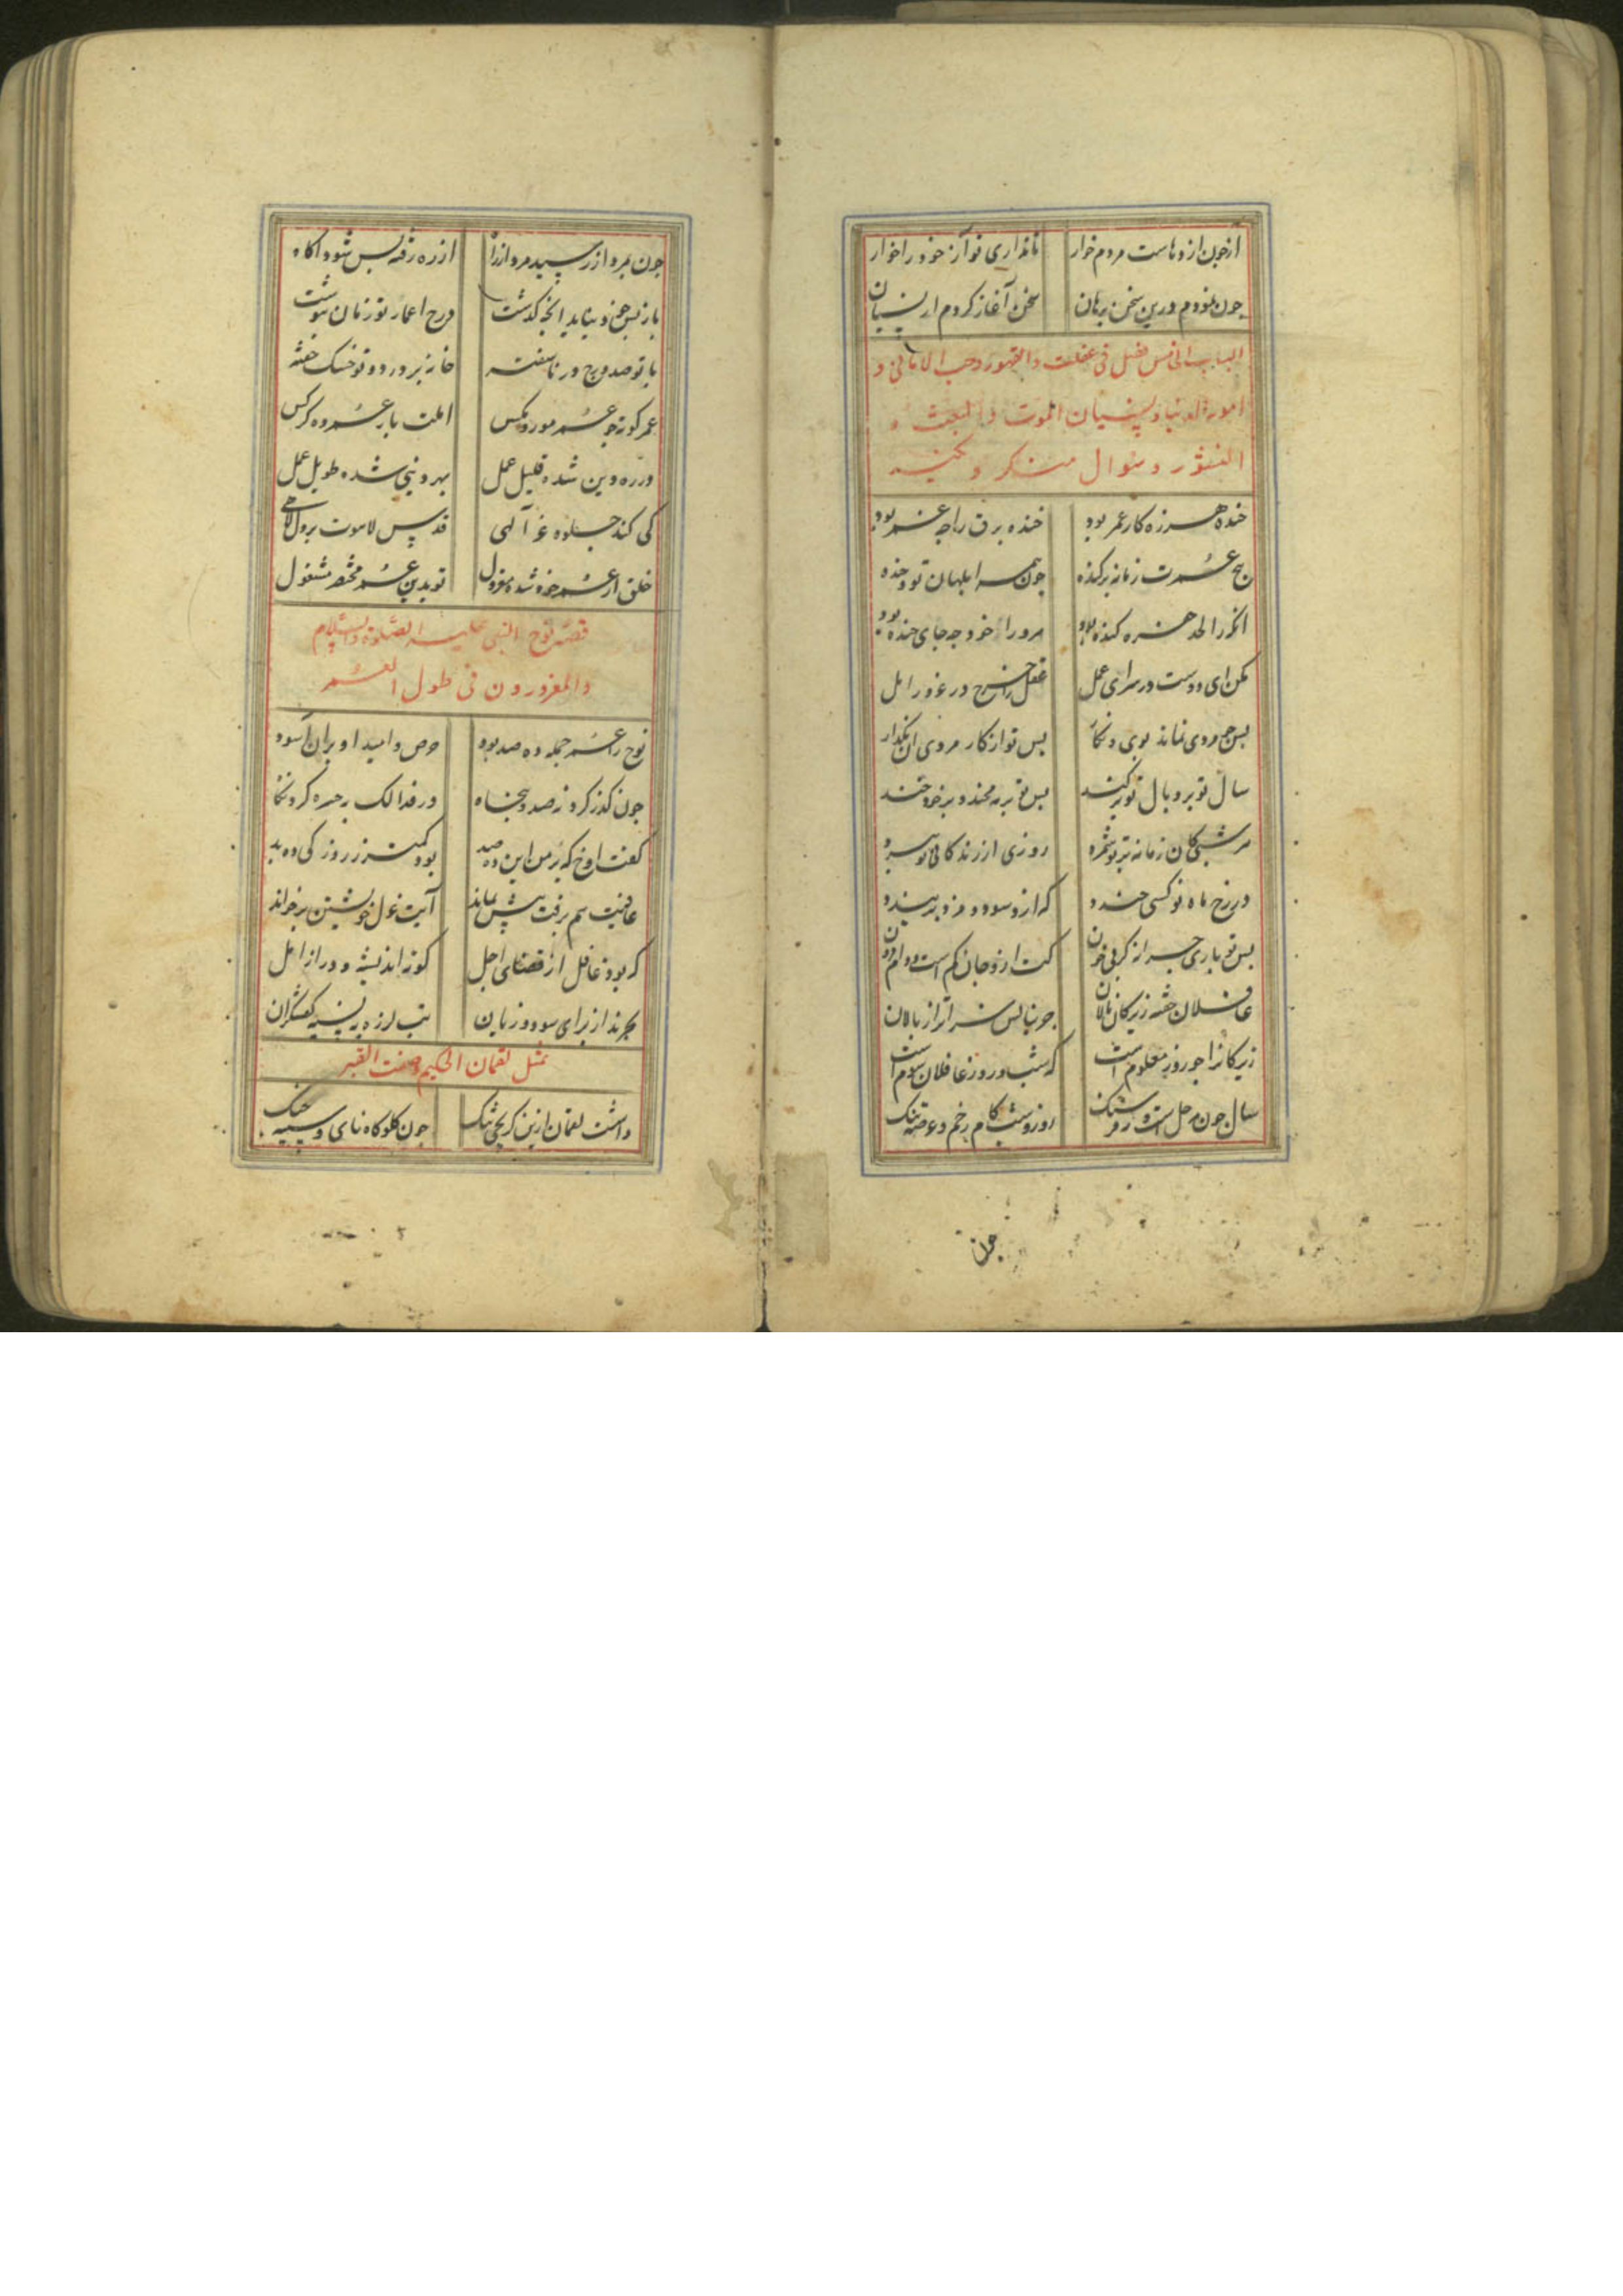 آز چون اژدهاست مردم خوار تا نداری تو آز خود را خوار
چون نمودم درین سخن برهان سخن آغاز کردم از نسیان
الباب الخامس فی غفلت و القهور و حب الامانی و
امورة الدنیا و نسیان الموت و البعث و
النشور و سوال منکر و نکیر
خنده هرزه کار عمر بود خنده برق را چه عمر بود
عمرت زمانه بر کنده چون همه ابلهان تو و خنده
آنکه را لحد کنده بود مرورا خود چه جای خنده بود
مکن ای دوست در سرای عمل عقل را خرج در غرور امل
پس چو مردی نماند بوی و نگار پس تو از کار مردی
سال نو بر و بال تو بر کند پس تو بر مه مخند و بر خود خند
هر شبی کان زمانه بر تو شمرد روزی از زندکانی تو ببرد
در رخ ماه نو کسی خندد که ازو سود و مزد بپسندد
پس تو باری چرا نکریی خون کت ازو جان کم است و وام افزون
غافلان خفته زیرکان نالان چون پالان
زیرکانرا چو روز معلوم است که شب و روز غافلان شوم است
سال چون مرحل است و ره فرسنک روز و شب کام
جون
چون بمرد از پسید مرد از راه از ره رفته پس شود آکاه
باز پس چند و بیاید انچه کذشت درج اعمار تو زمان بنوشت
با تو صد درج در ناسفته خانه پر درد و تو خسک خفته
عمر کوته چو عمر مور و مکس املت باز عمر ده کرکس
در ره دین شده قلیل عمل بهر دنیی شده طویل امل
کی کند جلوه عز آلهی قدس لاهوت بر دل لاهی
خلق از عمر خود شده معزول تو بدین عمر مختصر مشغول
قصه نوح النبی علیه الصلوة والسلام
والمغرورون فی طول العمر
نوح را عمر جمله ده صد بود حرص و امید او بران آسود
چون کذر کرد نهصد و پنجاه در فذالک بحسره کرد نکاه
کفت آوخ که بر من این ده صد بود کمتر ز روز کی ده بد
عافیت هم برفت پیش نماند آیت عزل خویشتن بر خواند
که بود غافل از قضای اجل کوته اندیشه و دراز امل
بخرند از برای سود و زیان تب لرزه به نسیه کفشکران
تمثل لقمان الحکیم وصفت القبر
داشت لقمان ازین کریچی تنک چون کلوکاه نای و سینه چنک